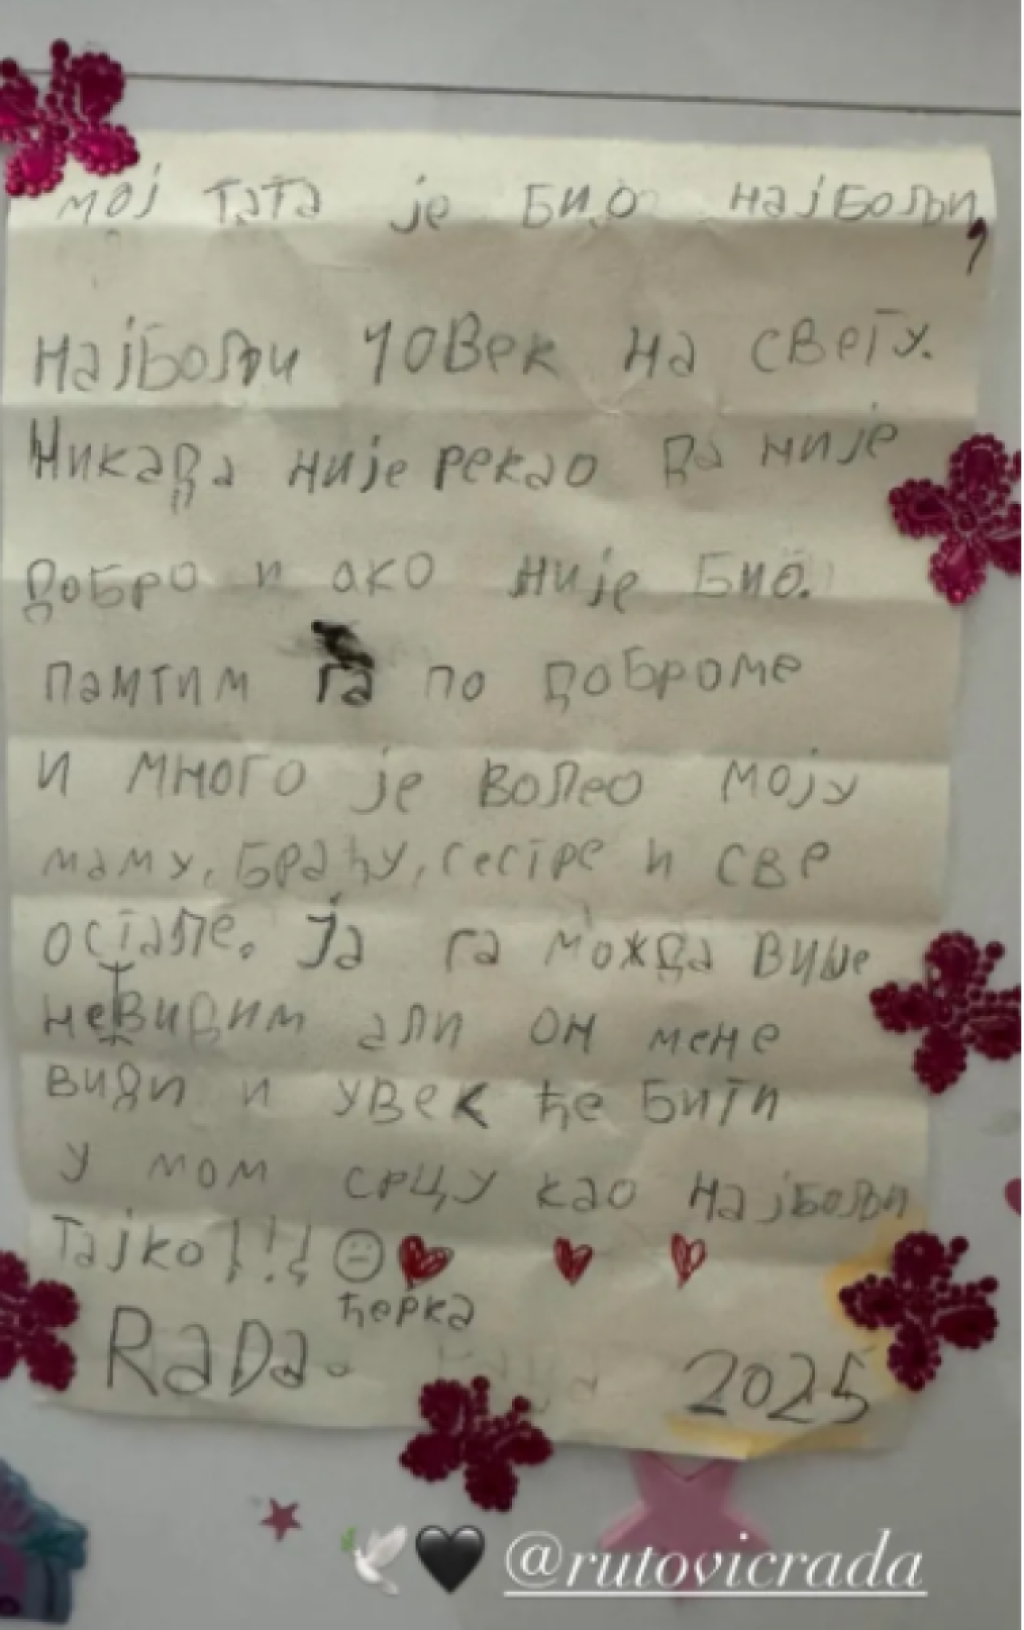 мој тата је био најбољи,
најбољи човек на свету.
Никада није рекао да није
добро и ако није био.
памтим га по доброме
и много је волео моју
маму, браћу, сестре и све
остале. Ја га можда више
невидим али он мене
види и увек ће бити
у мом срцу као најбољи
Тајко!!!
ћерка
RaDa. 2025
@rutovicrada